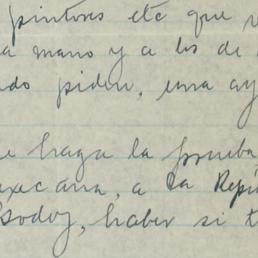 pintores etc que v
a mano y a los de
do piden, una ay
e haga la prueba
exicana, a la Repú
Godoy, haber si t